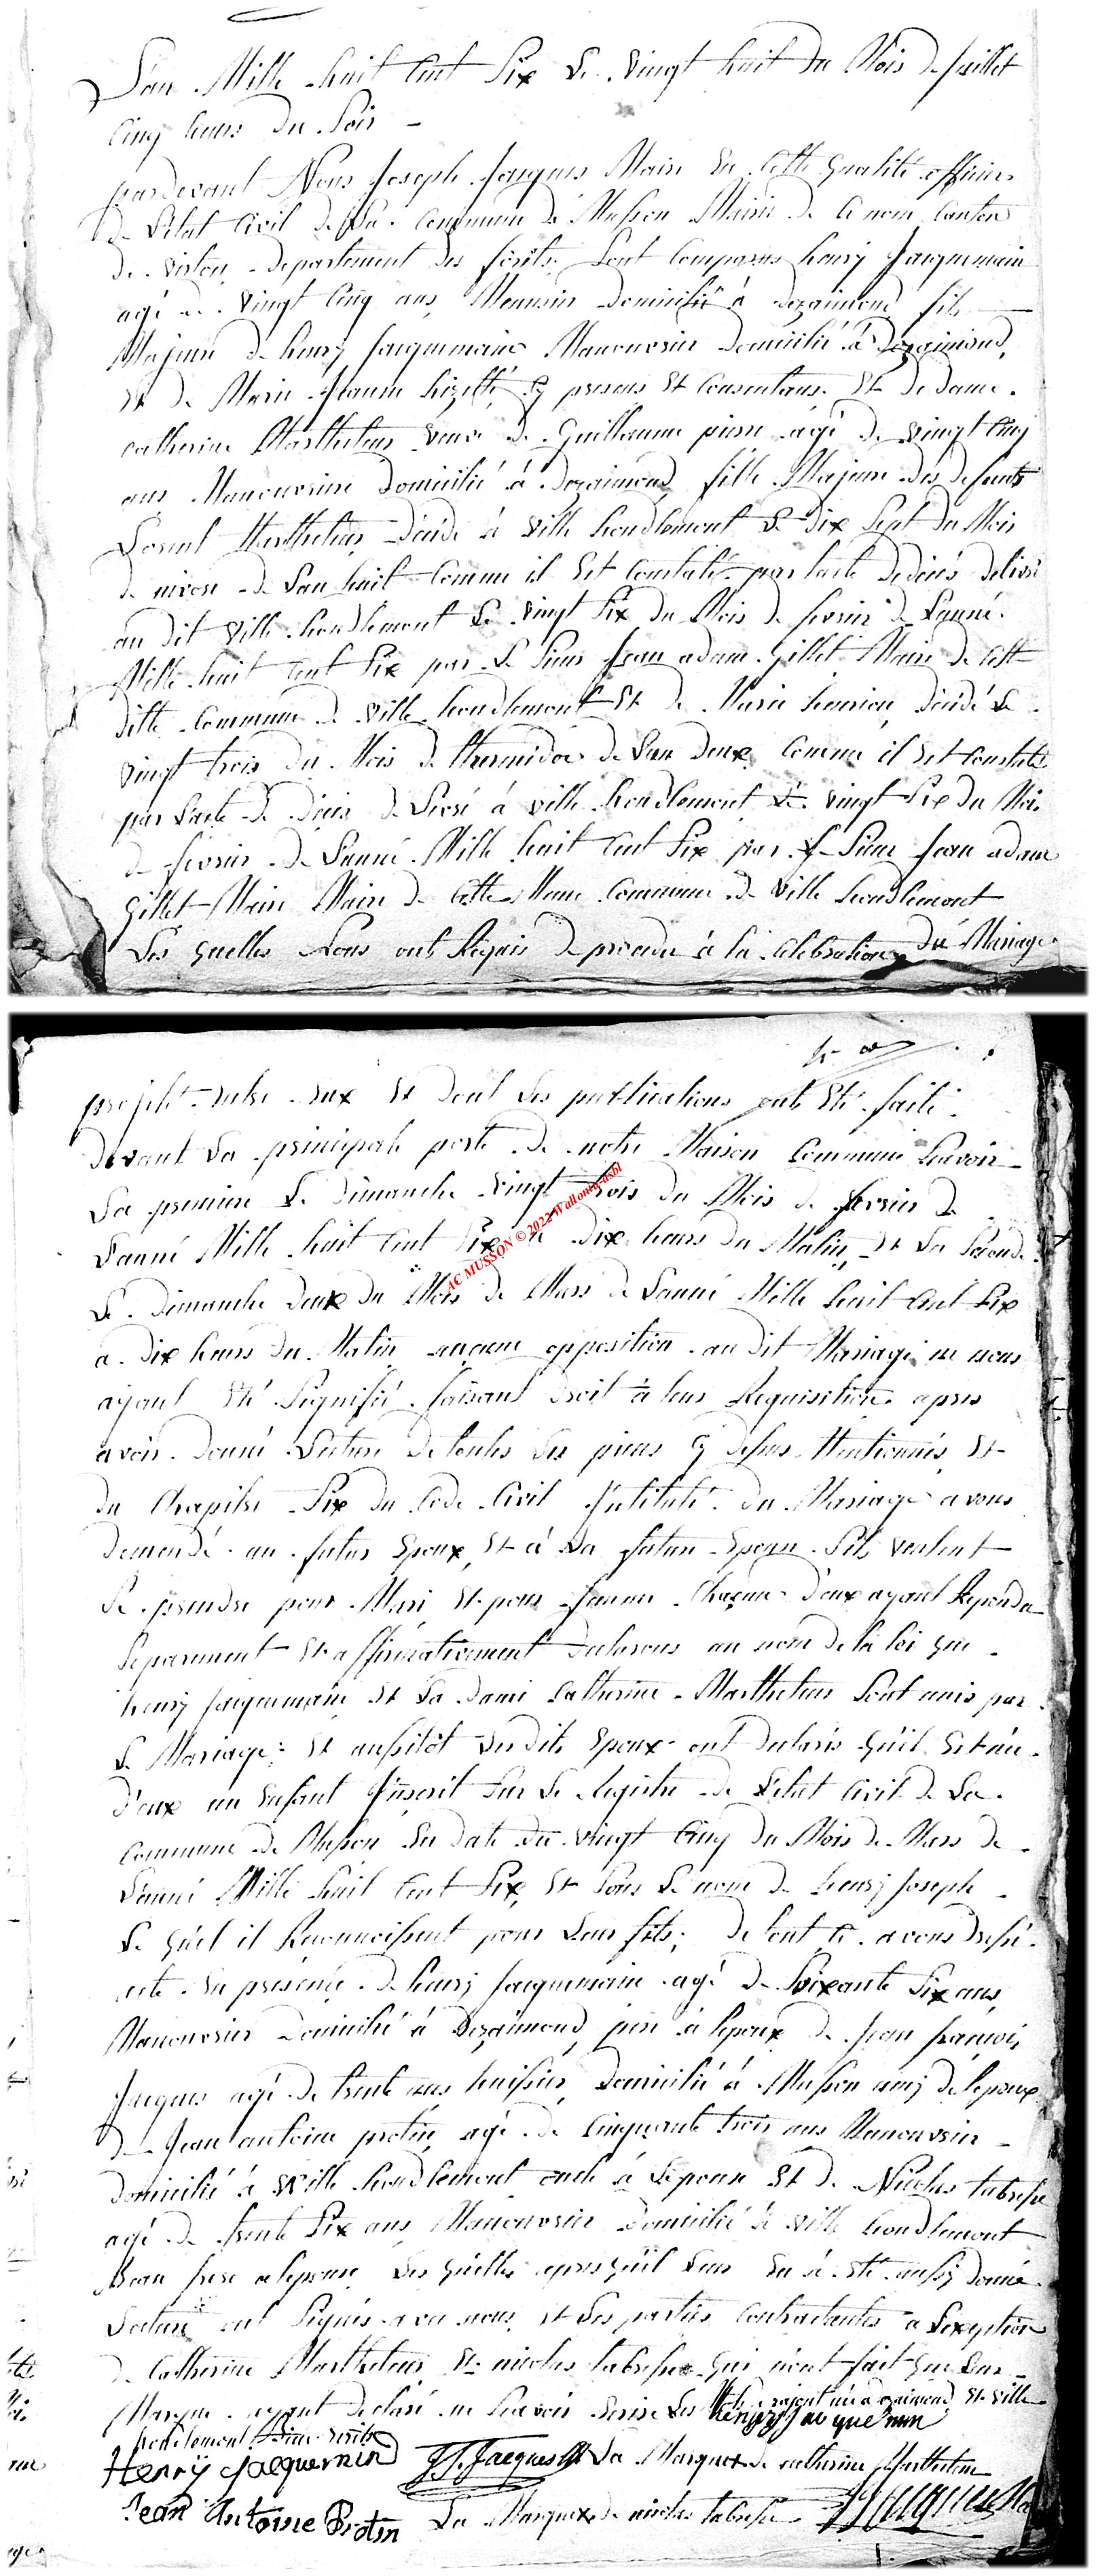 L'an Mille huit Cent Six Le Vingt huit du Mois de Juillet
Cinq heures du Soir -
pardevant Nous Joseph Jacques Maire En Cette qualité officier
de L'Etat Civil de La Commune de Musson Mairie de Ce nom Canton
de Virton departement des forêts, Sont Comparus henry Jacquemain
agé de Vingt Cinq ans, domicilié à fils
Majeur de henry Jacquemaine Manouvrier domicilié à
Et de Marie Jeanne Cy presens Et Consentans. Et de dame.
catherine Marthelein Veuve de Guillaume pierre agé de Vingt Cinq
ans Manouvriere domicilié à fille Majeure des defunts
Marthelein décédé à Ville houdlemont Le dix Sept du Mois
de nivose de L'an huit Comme il Est Constaté par L'acte de décés delivré
au dit Ville houdlemont Le Vingt Six du Mois de fevrier de L'année.
Mille huit Cent Six par Le Sieur Jean adam Gillet Maire de Cette
ditte Commune de Ville houdlemont Et de Marie décédé Le
Vingt trois du Mois de thermidor de L'an deux, Comme il Est Constaté
par L'acte de décés delivré à Ville houdlemont Le Vingt Six du Mois
de fevrier de L'année Mille huit Cent Six par Le Sieur Jean adam
Gillet Maire Maire de Cette Meme Commune de Ville houdlemont
Les quelles Nous ont Requis de proceder à la Celebration du Mariage
projeté Entre Eux Et dont Les publications ont Eté faite
devant La principale porte de notre Maison Commune Scavoir
La premiere Le dimanche Vingt trois du Mois de fevrier de
L'année Mille huit Cent Six à dix heures du Matin, Et La Seconde
Le dimanche deux du Mois de Mars de L'année Mille huit Cent Six
a dix heures du Matin aucune opposition au dit Mariage ne nous
ayant Eté Signifié faisant droit à leur Requisition apres
avoir donné Lecture de toutes Les pieces Cy dessus Mentionnés, Et
du Chapitre Six du Code Civil Jntitulé du Mariage avons
demandé au futur Epoux, Et à La future Epouse S'ils veulent
Se prendre pour Mari Et pour femme Chacune d'eux ayant Repondu
Separement Et affirmativement declarons au nom de la loi que
henry Jacquemain Et La dame Catherine Marthelein Sont unis par
Le Mariage; Et aussitôt Les dits Epoux ont declarés quil Est née
d'eux un Enfant Jnscrit Sur Le Registre de L'etat Civil de La
Commune de Musson En date du vingt Cinq du Mois de Mars de
L'année Mille huit Cent Six, Et Sous Le nom de henry Joseph
Le quel il Reconnoissent pour Leur fils; de tout Ce avons dressé
acte En presence de henry Jacquemain agé de Soixante Six ans,
Manouvrier domicilié à pere à lepoux de Jean françois
Jacques agé de trente ans huissier, domicilié à Musson amy de lepoux,
de Jean antoine protin agé de Cinquante trois ans Manouvrier
domicilié à Ville houdlemont oncle à Lepouse Et de Nicolas
agé de trente Six ans Manouvrier domicilié à Ville houdlemont
Beau frere a lepouse Les quelles apres quil Leur En a Eté aussy donné
Lecture ont Signés avec nous, Et Les parties Contractantes a Lexeption
de Catherine Marthelein Et nicolas qui n'ont fait que Leur
Marque ayant declaré ne Scavoir Ecrire Les Et Ville
houdlemont
Henry Jacquemin
Henrÿ Jacquemin J F Jacques La Marque x de catherine Marthelein
Jean Antoine Protin La Marque x de nicolas Jacques
AC MUSSON © 2022 Wallonia-asbl